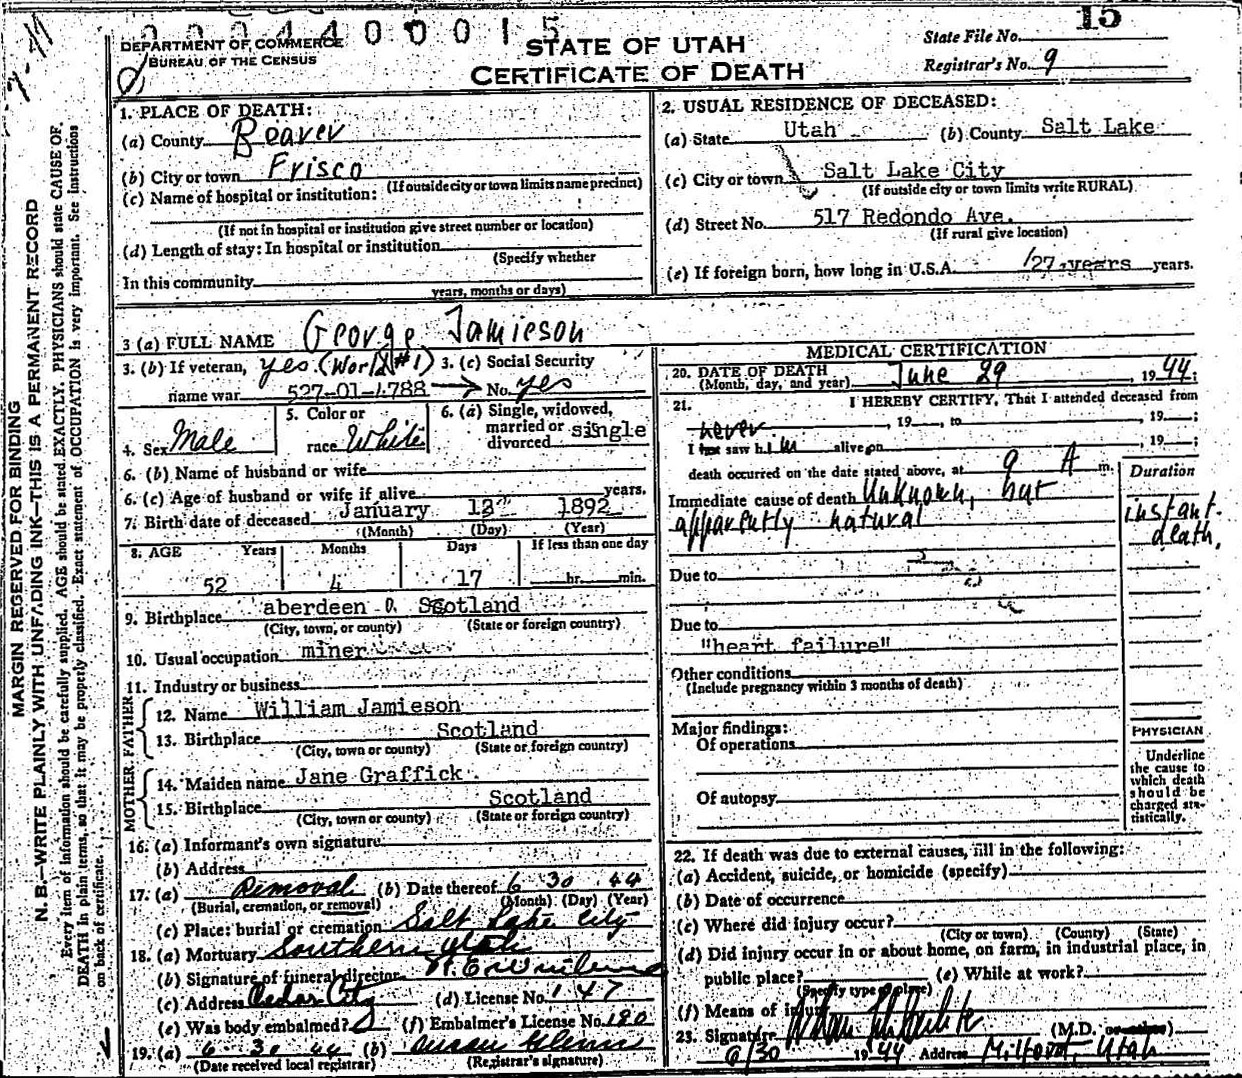 000440015
DEPARTMENT OF COMMERCE
BUREAU OF THE CENSUS
STATE OF UTAH
CERTIFICATE OF DEATH
State File No. 15
Registrar's No. 9
MARGIN RESERVED FOR BINDING
N. B.—WRITE PLAINLY WITH UNFADING INK—THIS IS A PERMANENT RECORD
Every item of information should be carefully supplied. AGE should be stated EXACTLY. PHYSICIANS should state CAUSE OF
DEATH in plain terms, so that it may be properly classified. Exact statement of OCCUPATION is very important. See Instructions
on back of certificate.
1. PLACE OF DEATH:
(a) County Beaver
(b) City or town Frisco
(If outside city or town limits name precinct)
(c) Name of hospital or institution:
(If not in hospital or institution give street number or location)
(d) Length of stay: In hospital or institution
(Specify whether
In this community
years, months or days)
2. USUAL RESIDENCE OF DECEASED:
(a) State Utah (b) County Salt Lake
(c) City or town Salt Lake City
(If outside city or town limits write RURAL)
(d) Street No. 517 Redondo Ave.
(If rural give location)
(e) If foreign born, how long in U.S.A. 27 years years.
3 (a) FULL NAME George Jamieson
3. (b) If veteran, yes (World #1) 3. (c) Social Security
name war 527-01-4788 No. yes
4. Sex Male
5. Color or
race White
6. (a) Single, widowed,
married or
divorced single
6. (b) Name of husband or wife
6. (c) Age of husband or wife if alive years.
7. Birth date of deceased January 12 1892
(Month) (Day) (Year)
8. AGE Years Months Days If less than one day
52 4 17 hr. min.
9. Birthplace aberdeen Scotland
(City, town, or county) (State or foreign country)
10. Usual occupation miner
11. Industry or business
FATHER
12. Name William Jamieson
13. Birthplace Scotland
(City, town or county) (State or foreign country)
MOTHER
14. Maiden name Jane Graffick
15. Birthplace Scotland
(City, town or county) (State or foreign country)
16. (a) Informant's own signature
(b) Address
17. (a) Removal (b) Date thereof 6 30 44
(Burial, cremation, or removal) (Month) (Day) (Year)
(c) Place: burial or cremation Salt Lake City
18. (a) Mortuary Southern Utah
(b) Signature of funeral director
(c) Address Cedar City (d) License No. 147
(e) Was body embalmed? (f) Embalmer's License No. 180
19. (a) 6-30-44 (b)
(Date received local registrar) (Registrar's signature)
MEDICAL CERTIFICATION
20. DATE OF DEATH
(Month, day, and year) June 29, 1944;
21. I HEREBY CERTIFY, That I attended deceased from
never, 19 , to , 19 ;
I saw him alive on , 19 ;
death occurred on the date stated above, at 9 A m.
Duration
Immediate cause of death Unknown, but
apparently natural
instant
death.
Due to
Due to
"heart failure"
Other conditions
(Include pregnancy within 3 months of death)
Major findings:
Of operations
Of autopsy
PHYSICIAN
Underline
the cause to
which death
should be
charged sta-
tistically.
22. If death was due to external causes, fill in the following:
(a) Accident, suicide, or homicide (specify)
(b) Date of occurrence
(c) Where did injury occur?
(City or town) (County) (State)
(d) Did injury occur in or about home, on farm, in industrial place, in
public place? (e) While at work?
(Specify type of place)
(f) Means of injury
23. Signature (M.D. or other)
6/30 1944 Address Milford, Utah